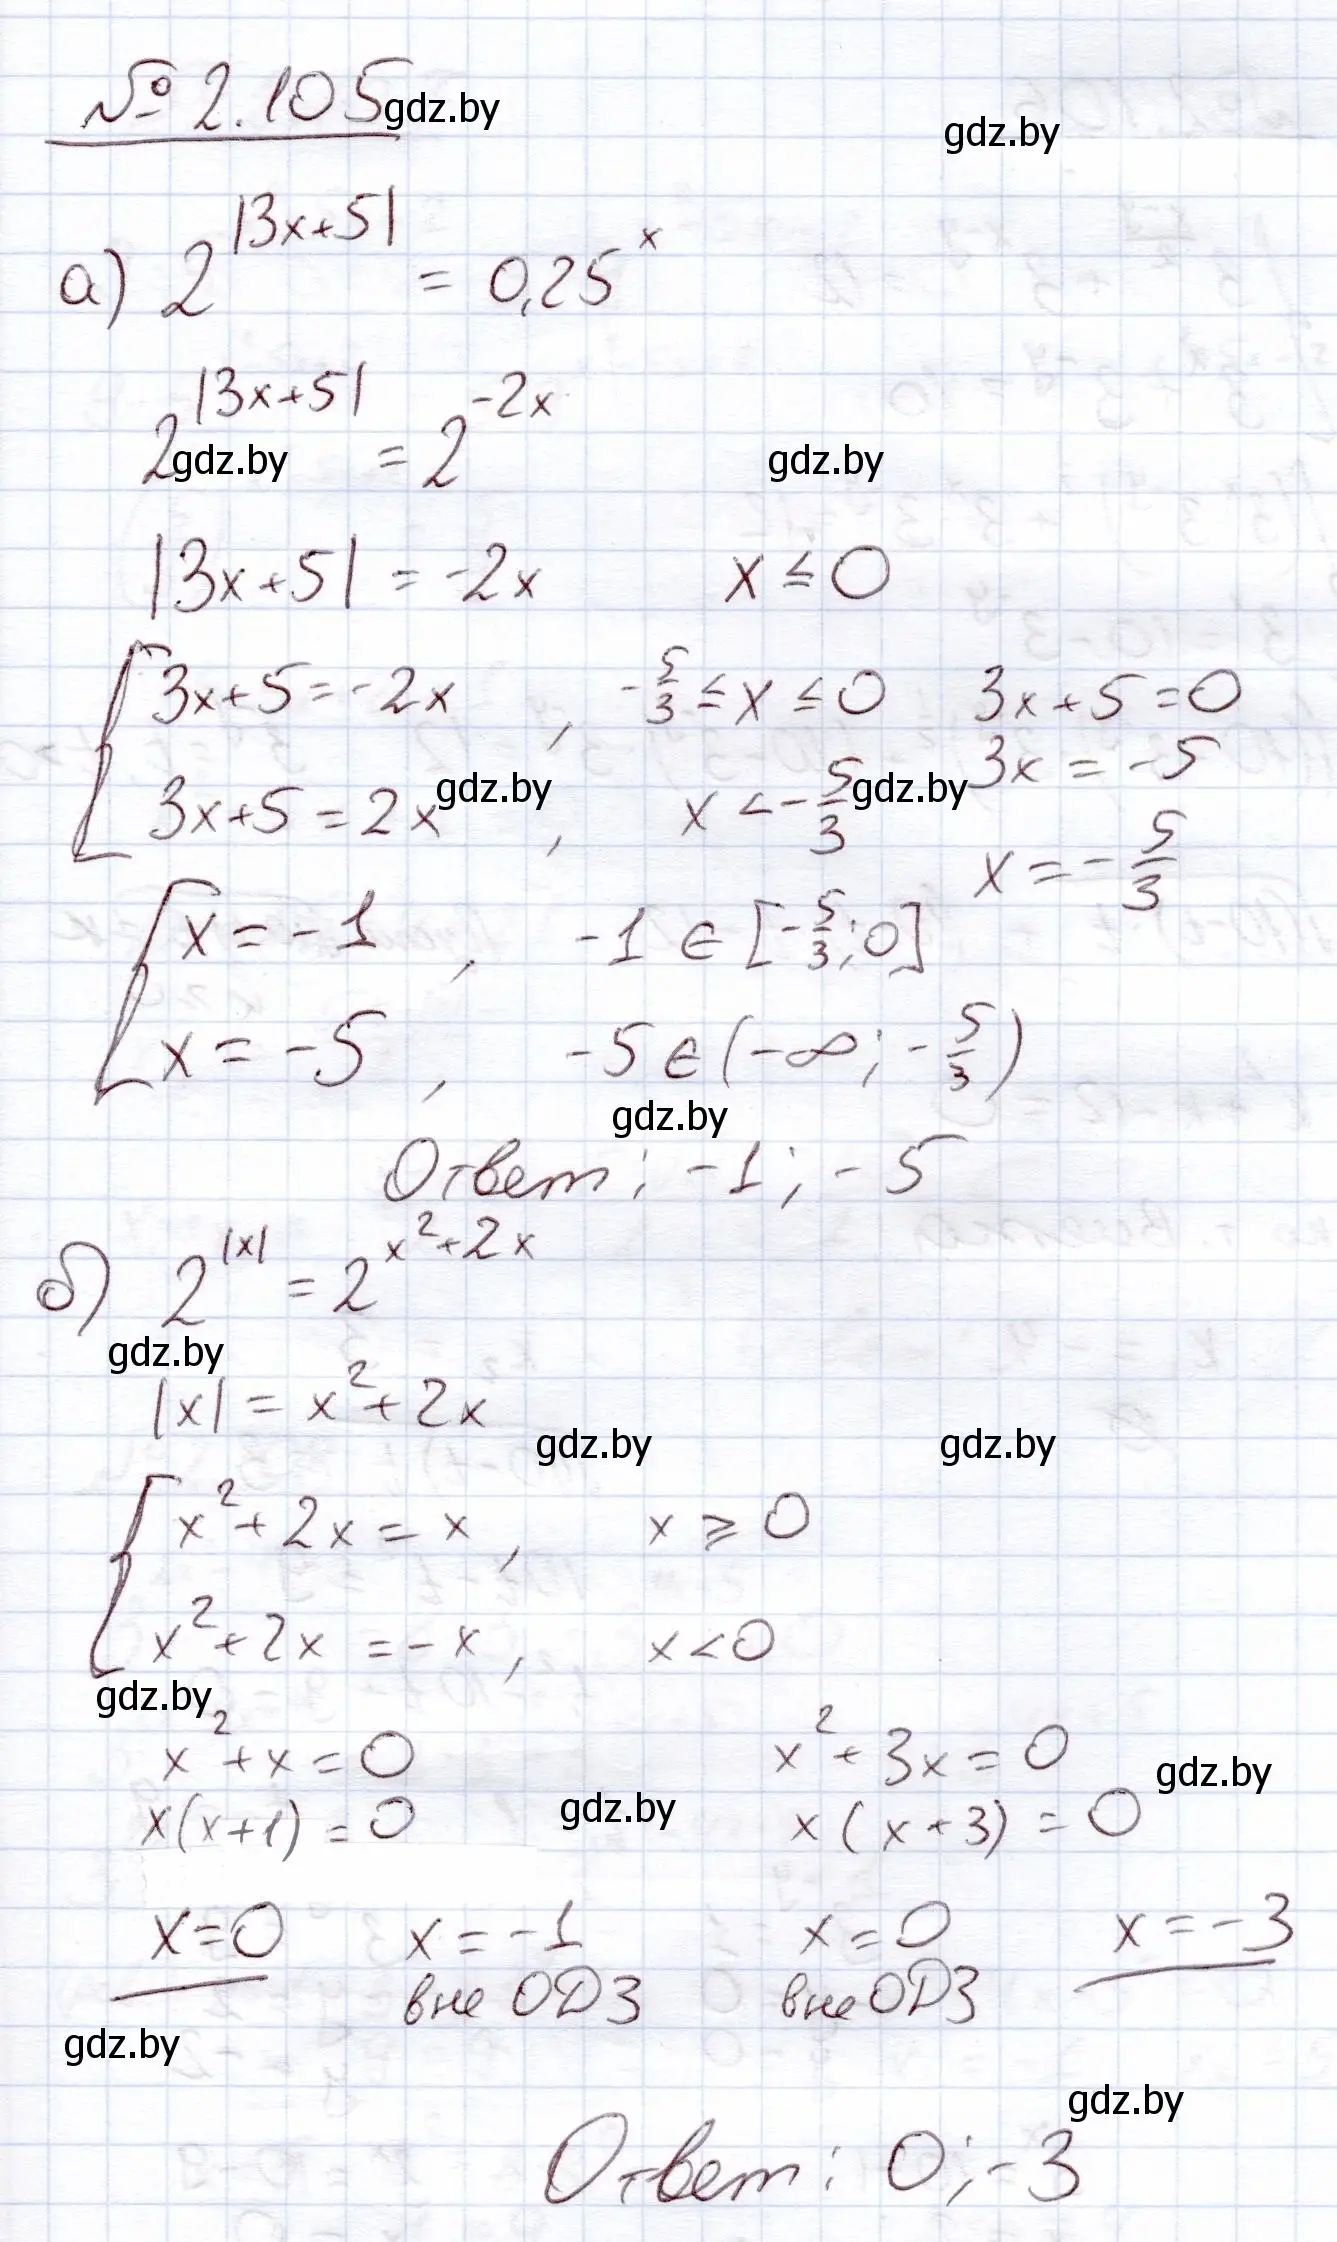 № 2.105 gdz.by gdz.by
а) 2^|3x+5| = 0,25^x
2^|3x+5| = 2^-2x
gdz.by gdz.by
|3x+5| = -2x x ≤ 0
[3x+5 = -2x , -5/3 ≤ x ≤ 0 3x+5=0
gdz.by gdz.by 3x = -5
3x+5 = 2x , x < -5/3
x = -5/3
[x = -1 , -1 ∈ [-5/3; 0]
x = -5 , -5 ∈ (-∞; -5/3)
gdz.by
Ответ: -1; -5
б) 2^|x| = 2^x²+2x
gdz.by
|x| = x² + 2x
gdz.by gdz.by
[x² + 2x = x , x ≥ 0
x² + 2x = -x , x < 0
gdz.by
x² + x = 0 x² + 3x = 0
gdz.by
x(x+1) = 0 gdz.by x(x+3) = 0
x=0 x = -1 x = 0 x = -3
вне ОДЗ вне ОДЗ
gdz.by
gdz.by
Ответ: 0; -3